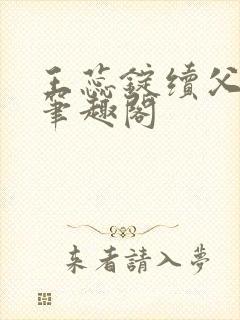 王蕊锭續父
筆趣閣
来者請入夢